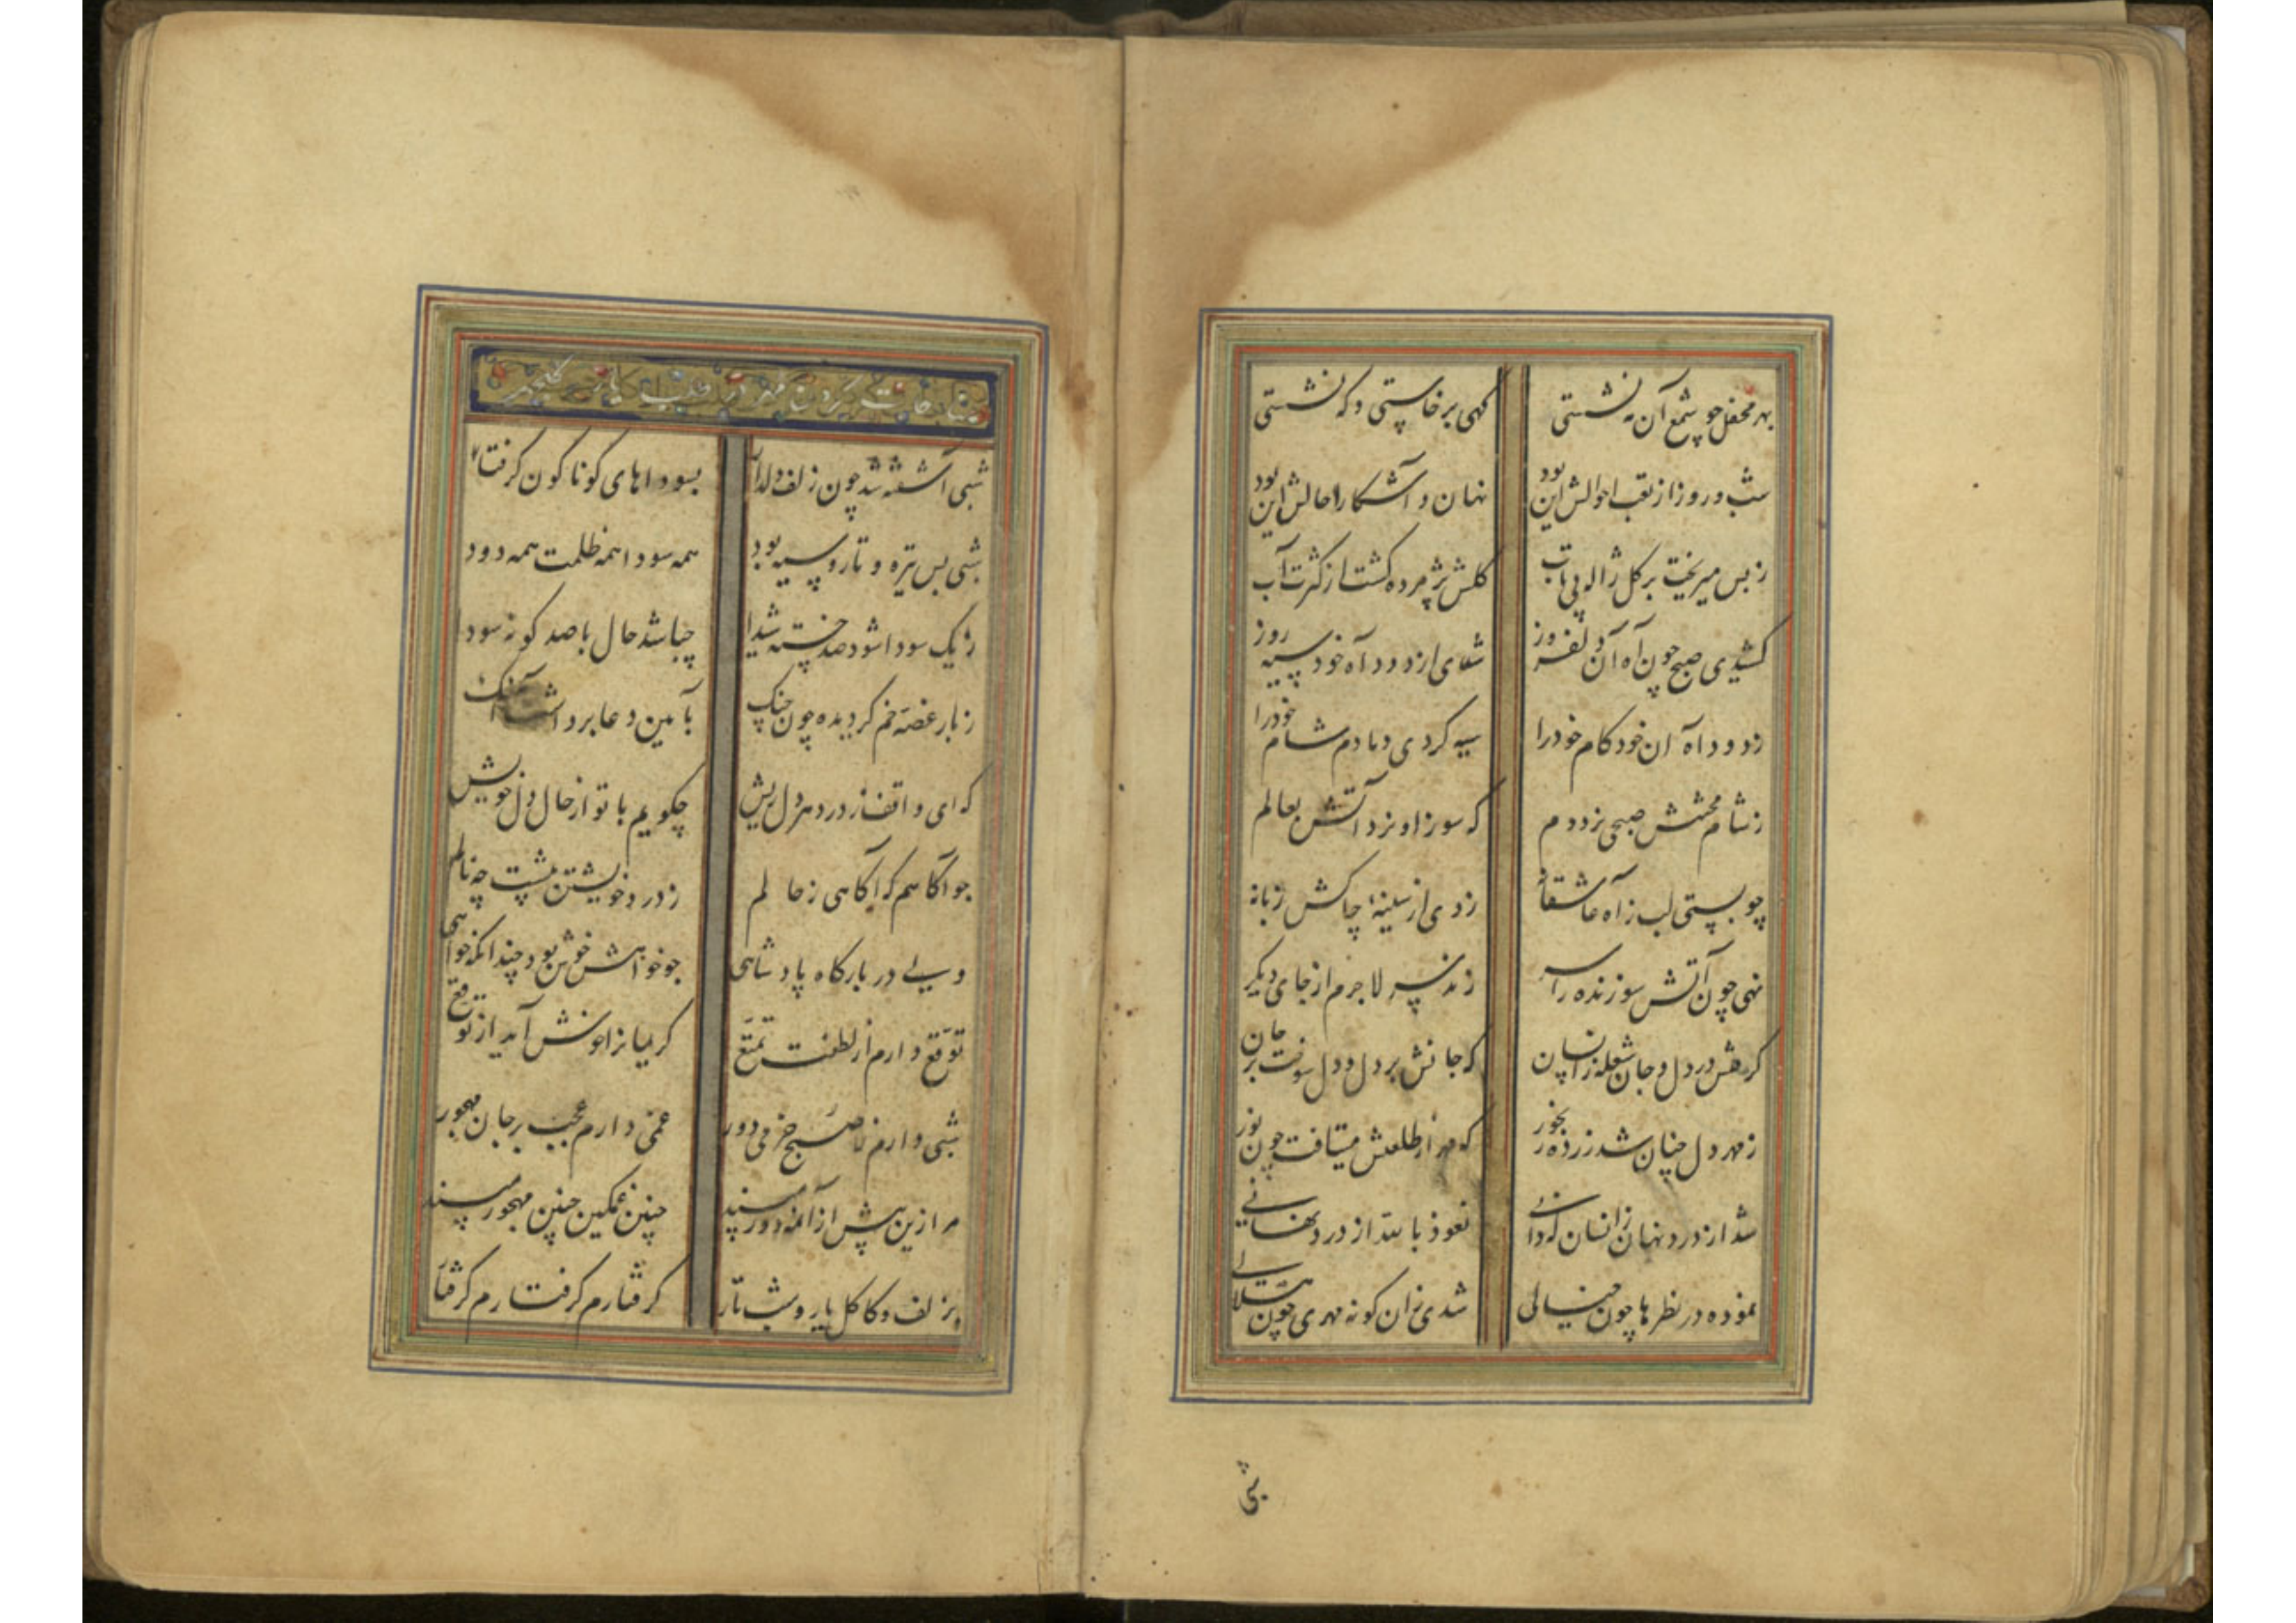 بهر محفل چو شمع آن مه نشستی کهی برخاستی و که نشستی
شب و روز از تعب احوالش این بود نهان و آشکارا حالش این بود
ز بس میریخت بر کل ژاله بی تاب کلش پژمرده کشت از کثرت آب
کشیدی صبح چون آه آن دلفروز شدی از دود آه خود سیه روز
ز دود آه آن خود کام خود را سیه کردی دمادم شام خود را
ز شام محنتش صبحی نزد دم که سوز او نزد آتش بعالم
چو بستی لب ز آه عاشقانه زدی از سینهٔ چاکش زبانه
نهی چون آتش سوزنده را سر زند سر لاجرم از جای دیکر
کرهش در دل و جان شعله زانسان که جانش بر دل و دل سوخت بر جان
ز مهر دل چنان شد زرد رنجور که مهر از طلعتش میتافت چون نور
شد از درد نهان زانسان که دانی نعوذ بالله از درد نهانی
نموده در نظرها چون خیالی شدی زان کونه مهری چون هلالی
شبی
مناجات کردن مهر در طلب
شبی آشفته شد چون زلف دلدار بسوداهای کوناکون کرفتار
شبی بس تیره و تار و سیه بود همه سودا همه ظلمت همه دود
ز یک سودا شود صد خسته شیدا چباشد حال با صد کونه سودا
ز بار غصه خم کردیده چون چنک بآیین دعا برداشت آهنک
که ای واقف ز درد هر دل ریش چکویم با تو از حال دل خویش
چو آکاهم که آکاهی ز حالم ز درد خویشتن پیشت چه نالم
ولی در بارکاه پادشاهی چو خواهش خوش بود چندانکه خواهی
توقع دارم از لطفت تمتع کریمانرا خوش آید از توقع
شبی دارم ز صبح خرمی دور غمی دارم عجب بر جان مهجور
مرا زین بیش از آن مه دور مپسند چنین غمکین چنین مهجور مپسند
بزلف و کاکل یار و شب تار کرفتارم کرفتارم کرفتار